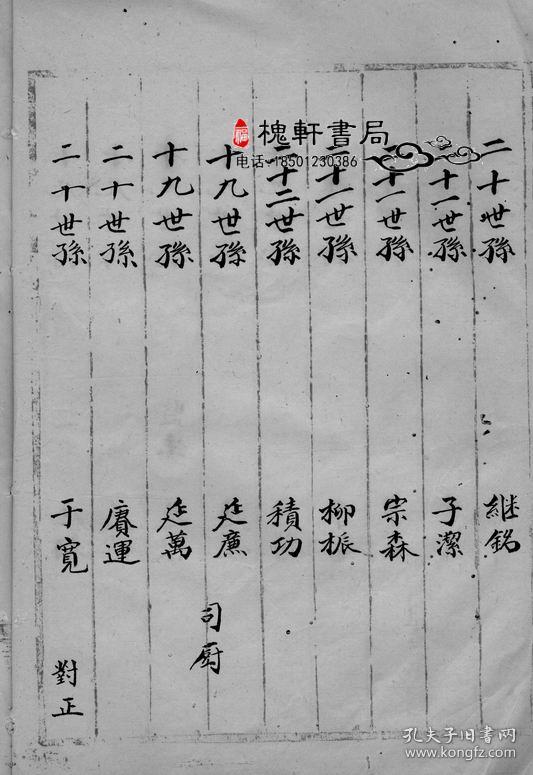 二十世孫 継銘
十一世孫 子潔
十一世孫 宗森
二十一世孫 柳桭
二十二世孫 積功
十九世孫 廷廉 司厨
十九世孫 廷萬
二十世孫 賡運
二十世孫 于寬 對正
槐軒書局
电话:18501230386
孔夫子旧书网
www.kongfz.com